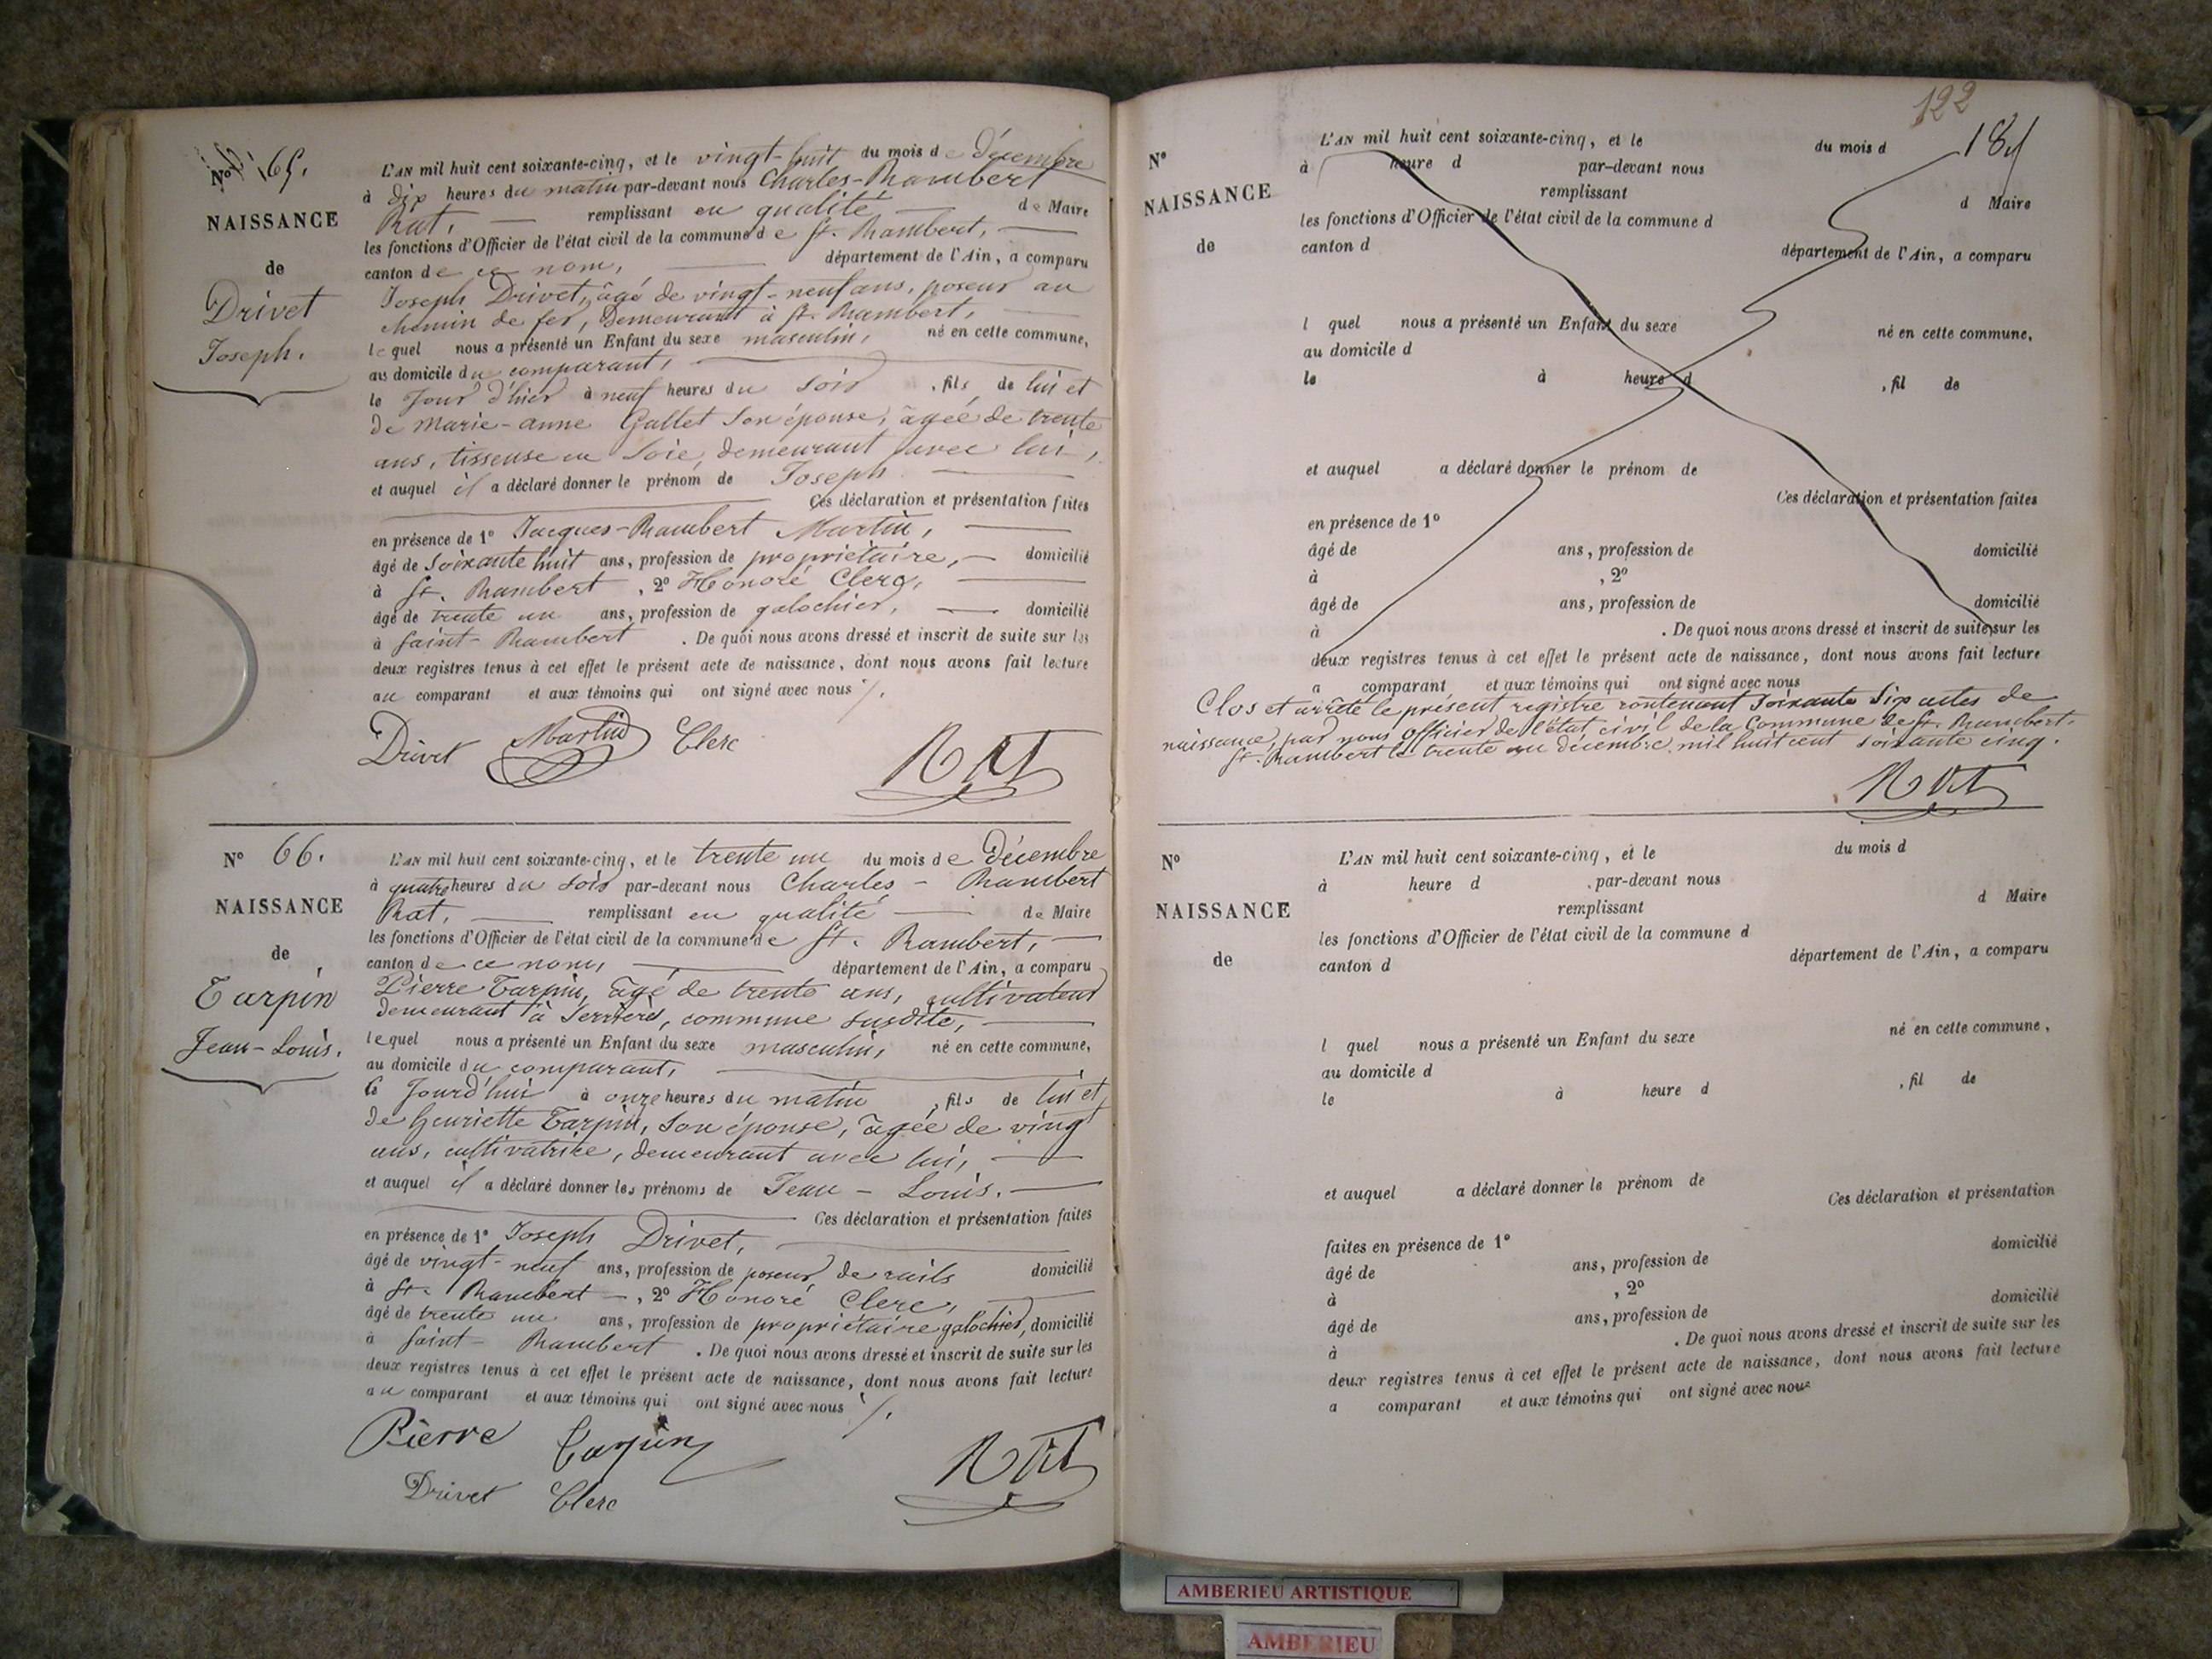 N° 65.
NAISSANCE
de
Drivet
Joseph.
L'AN mil huit cent soixante-cinq, et le vingt-huit du mois de décembre
à dix heures du matin par-devant nous Charles-Rambert
Rat, remplissant en qualité de Maire
les fonctions d'Officier de l'état civil de la commune de St. Rambert,
canton de ce nom, département de l'Ain, a comparu
Joseph Drivet, âgé de vingt-neuf ans, poseur au
chemin de fer, demeurant à St. Rambert,
lequel nous a présenté un Enfant du sexe masculin, né en cette commune,
au domicile du comparant,
le Jour d'hier à neuf heures du soir, fils de lui et
de Marie-anne Gallet son épouse, âgée de trente
ans, tisseuse en soie, demeurant avec lui,
et auquel il a déclaré donner le prénom de Joseph
Ces déclaration et présentation faites
en présence de 1° Jacques-Rambert Martin,
âgé de soixante huit ans, profession de propriétaire, domicilié
à St. Rambert, 2° Honoré Clerc,
âgé de trente un ans, profession de galochier, domicilié
à Saint-Rambert. De quoi nous avons dressé et inscrit de suite sur les
deux registres tenus à cet effet le présent acte de naissance, dont nous avons fait lecture
au comparant et aux témoins qui ont signé avec nous ./.
Drivet Martin Clerc
Rat
N° 66.
NAISSANCE
de
Tarpin
Jean-Louis.
L'AN mil huit cent soixante-cinq, et le trente un du mois de décembre
à quatre heures du soir par-devant nous Charles-Rambert
Rat, remplissant en qualité de Maire
les fonctions d'Officier de l'état civil de la commune de St. Rambert,
canton de ce nom, département de l'Ain, a comparu
Pierre Tarpin, âgé de trente ans, cultivateur
demeurant à Serrières, commune susdite,
lequel nous a présenté un Enfant du sexe masculin, né en cette commune,
au domicile du comparant,
ce Jourd'hui à onze heures du matin, fils de lui et
de henriette Tarpin, son épouse, âgée de vingt
ans, cultivatrice, demeurant avec lui,
et auquel il a déclaré donner les prénoms de Jean-Louis.
Ces déclaration et présentation faites
en présence de 1° Joseph Drivet,
âgé de vingt-neuf ans, profession de poseur de rails domicilié
à St. Rambert, 2° Honoré Clerc,
âgé de trente un ans, profession de propriétaire galochier, domicilié
à Saint-Rambert. De quoi nous avons dressé et inscrit de suite sur les
deux registres tenus à cet effet le présent acte de naissance, dont nous avons fait lecture
au comparant et aux témoins qui ont signé avec nous ./.
Pierre Tarpin
Drivet Clerc
Rat
122
N°
NAISSANCE
de
L'AN mil huit cent soixante-cinq, et le du mois d
à heure d par-devant nous
remplissant d Maire
les fonctions d'Officier de l'état civil de la commune d
canton d département de l'Ain, a comparu
l quel nous a présenté un Enfant du sexe né en cette commune,
au domicile d
le à heure d, fil de
et auquel a déclaré donner le prénom de
Ces déclaration et présentation faites
en présence de 1°
âgé de ans, profession de domicilié
à, 2°
âgé de ans, profession de domicilié
à. De quoi nous avons dressé et inscrit de suite sur les
deux registres tenus à cet effet le présent acte de naissance, dont nous avons fait lecture
a comparant et aux témoins qui ont signé avec nous
Clos et arrêté le présent registre contenant soixante six actes de
naissance, par nous Officier de l'état civil de la Commune de St. Rambert.
St. Rambert le trente un décembre mil huit cent soixante cinq.
Rat
N°
NAISSANCE
de
L'AN mil huit cent soixante-cinq, et le du mois d
à heure d par-devant nous
remplissant d Maire
les fonctions d'Officier de l'état civil de la commune d
canton d département de l'Ain, a comparu
l quel nous a présenté un Enfant du sexe né en cette commune,
au domicile d
le à heure d, fil de
et auquel a déclaré donner le prénom de
Ces déclaration et présentation
faites en présence de 1°
âgé de ans, profession de domicilié
à, 2°
âgé de ans, profession de domicilié
à. De quoi nous avons dressé et inscrit de suite sur les
deux registres tenus à cet effet le présent acte de naissance, dont nous avons fait lecture
a comparant et aux témoins qui ont signé avec nous
AMBERIEU ARTISTIQUE
AMBERIEU